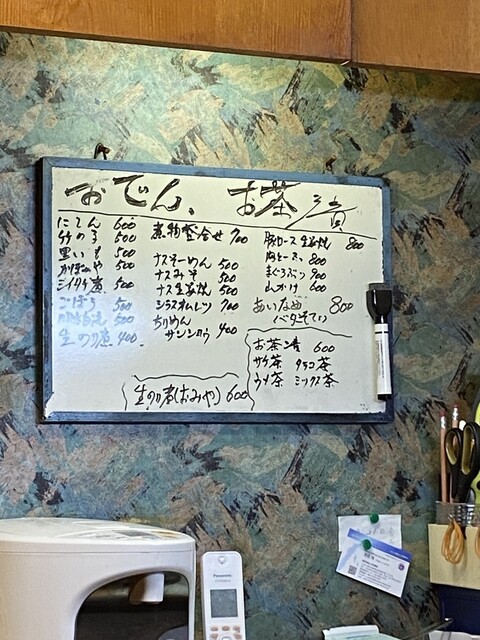 おでん、お茶漬
にてん 600
竹の子 500
黒いも 500
かぼちゃ 500
シイタケ煮 500
ごぼう 500
500
生のり 400
煮物盛合せ 700
ナスそーめん 500
ナスみそ 500
ナス生姜焼 500
シラスオムレツ 700
ちりめん
サンショウ 400
豚ロース生姜焼 800
800
まぐろぶつ 900
山かけ 600
あいなめ 800
お茶漬 600
サケ茶 タラコ茶
ウメ茶 ミックス茶
生のり煮(おみや) 600
Panasonic